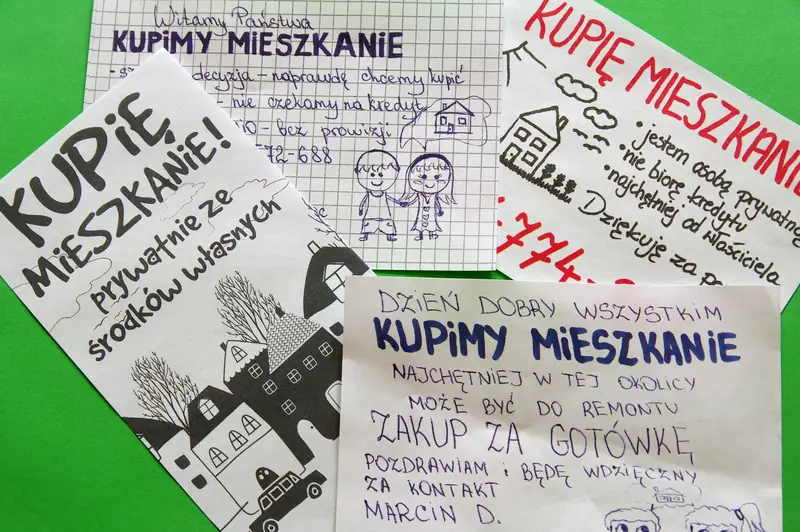 Witamy Państwa
KUPIMY MIESZKANIE
decyzja - naprawdę chcemy kupić
- nie czekamy na kredyt
- bez prowizji
72-688
KUPIĘ MIESZKANIE
• jestem osobą prywatną
• nie biorę kredytu
• najchętniej od właściciela
Dziękuję za
774
KUPIĘ
MIESZKANIE!
prywatnie ze
środków własnych
DZIEŃ DOBRY WSZYSTKIM
KUPIMY MIESZKANIE
NAJCHĘTNIEJ W TEJ OKOLICY
MOŻE BYĆ DO REMONTU
ZAKUP ZA GOTÓWKĘ
POZDRAWIAM i BĘDĘ WDZIĘCZNY
ZA KONTAKT
MARCIN D.